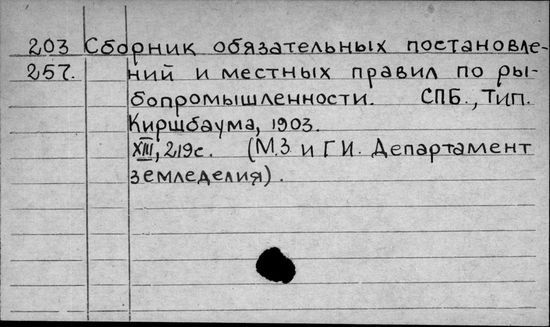 203 Сборник обязательных постановле-
257. ний и местных правил по ры-
бопромышленности. СПБ., Тип.
Киршбаума, 1903.
XIII, 219с. (М.З и Г.И. Департамент
земледелия).